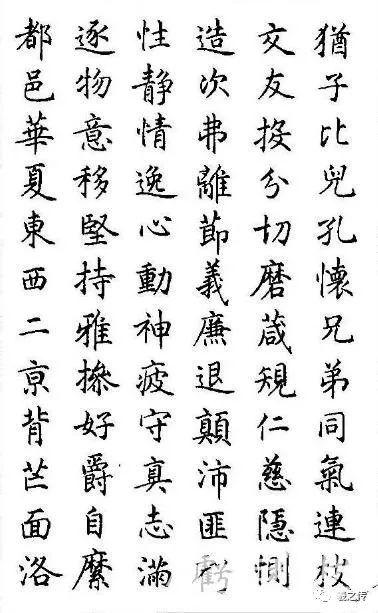 猶子比兒孔懷兄弟同氣連枝
交友投分切磨箴規仁慈隱惻
造次弗離節義廉退顛沛匪虧
性靜情逸心動神疲守真志滿
逐物意移堅持雅操好爵自縻
都邑華夏東西二京背芒面洛
羲之传